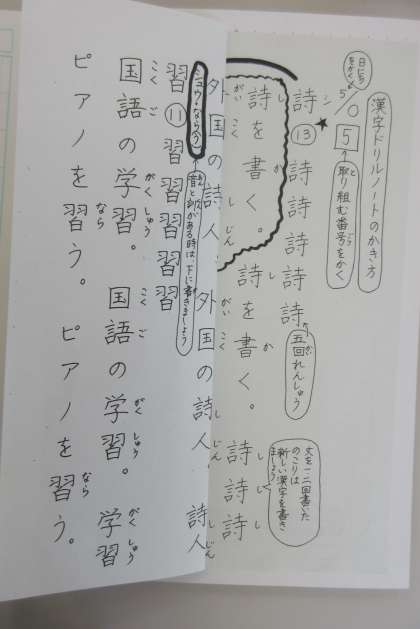 漢字ドリルノートのかき方
日にちをかく
5/10 5
取り組む番号をかく
シ
詩⑬ 詩詩詩詩詩
五回れんしゅう
詩を書く。詩を書く。詩詩詩
文を一、二回書いたのこりは新しい漢字を書きましょう
外国の詩人。外国の詩人。詩人
シュウ・なら(う)
習⑪習習習習習
音と訓がある時は、下に書きましょう
国語の学習。国語の学習。学習
ピアノを習う。ピアノを習う。